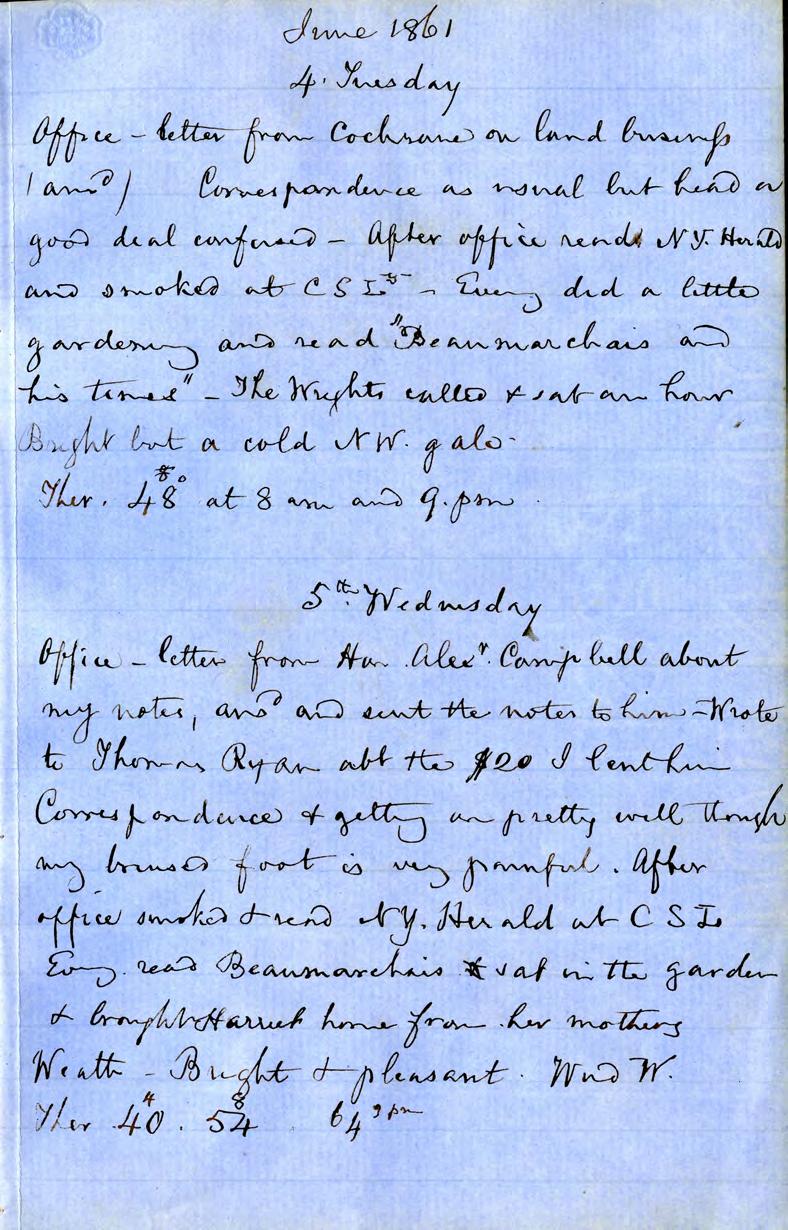 June 1861
4. Tuesday
Office - letter from Cochrane on land business
(ansd) Correspondence as usual but head a
good deal confused - After office read N.Y. Herald
and smoked at C S Is - Eveng did a little
gardening and read "Beaumarchais and
his times" - The Wrights called & sat an hour
Bright but a cold NW. gale.
Ther. 48° at 8 am and 9. pm
5th Wednesday
Office - letter from Hon Alexr. Campbell about
my notes, ansd and sent the notes to him - Wrote
to Thomas Ryan abt the $20 I lent him
Correspondence & getting on pretty well though
my bruised foot is very painful. After
office smoked & read N.Y. Herald at C S Is
Eveng. read Beaumarchais & sat in the garden
& brought Harriet home from her mothers
Weath - Bright & pleasant. Wind W.
Ther 40 4 . 54 8 . 64 9 pm